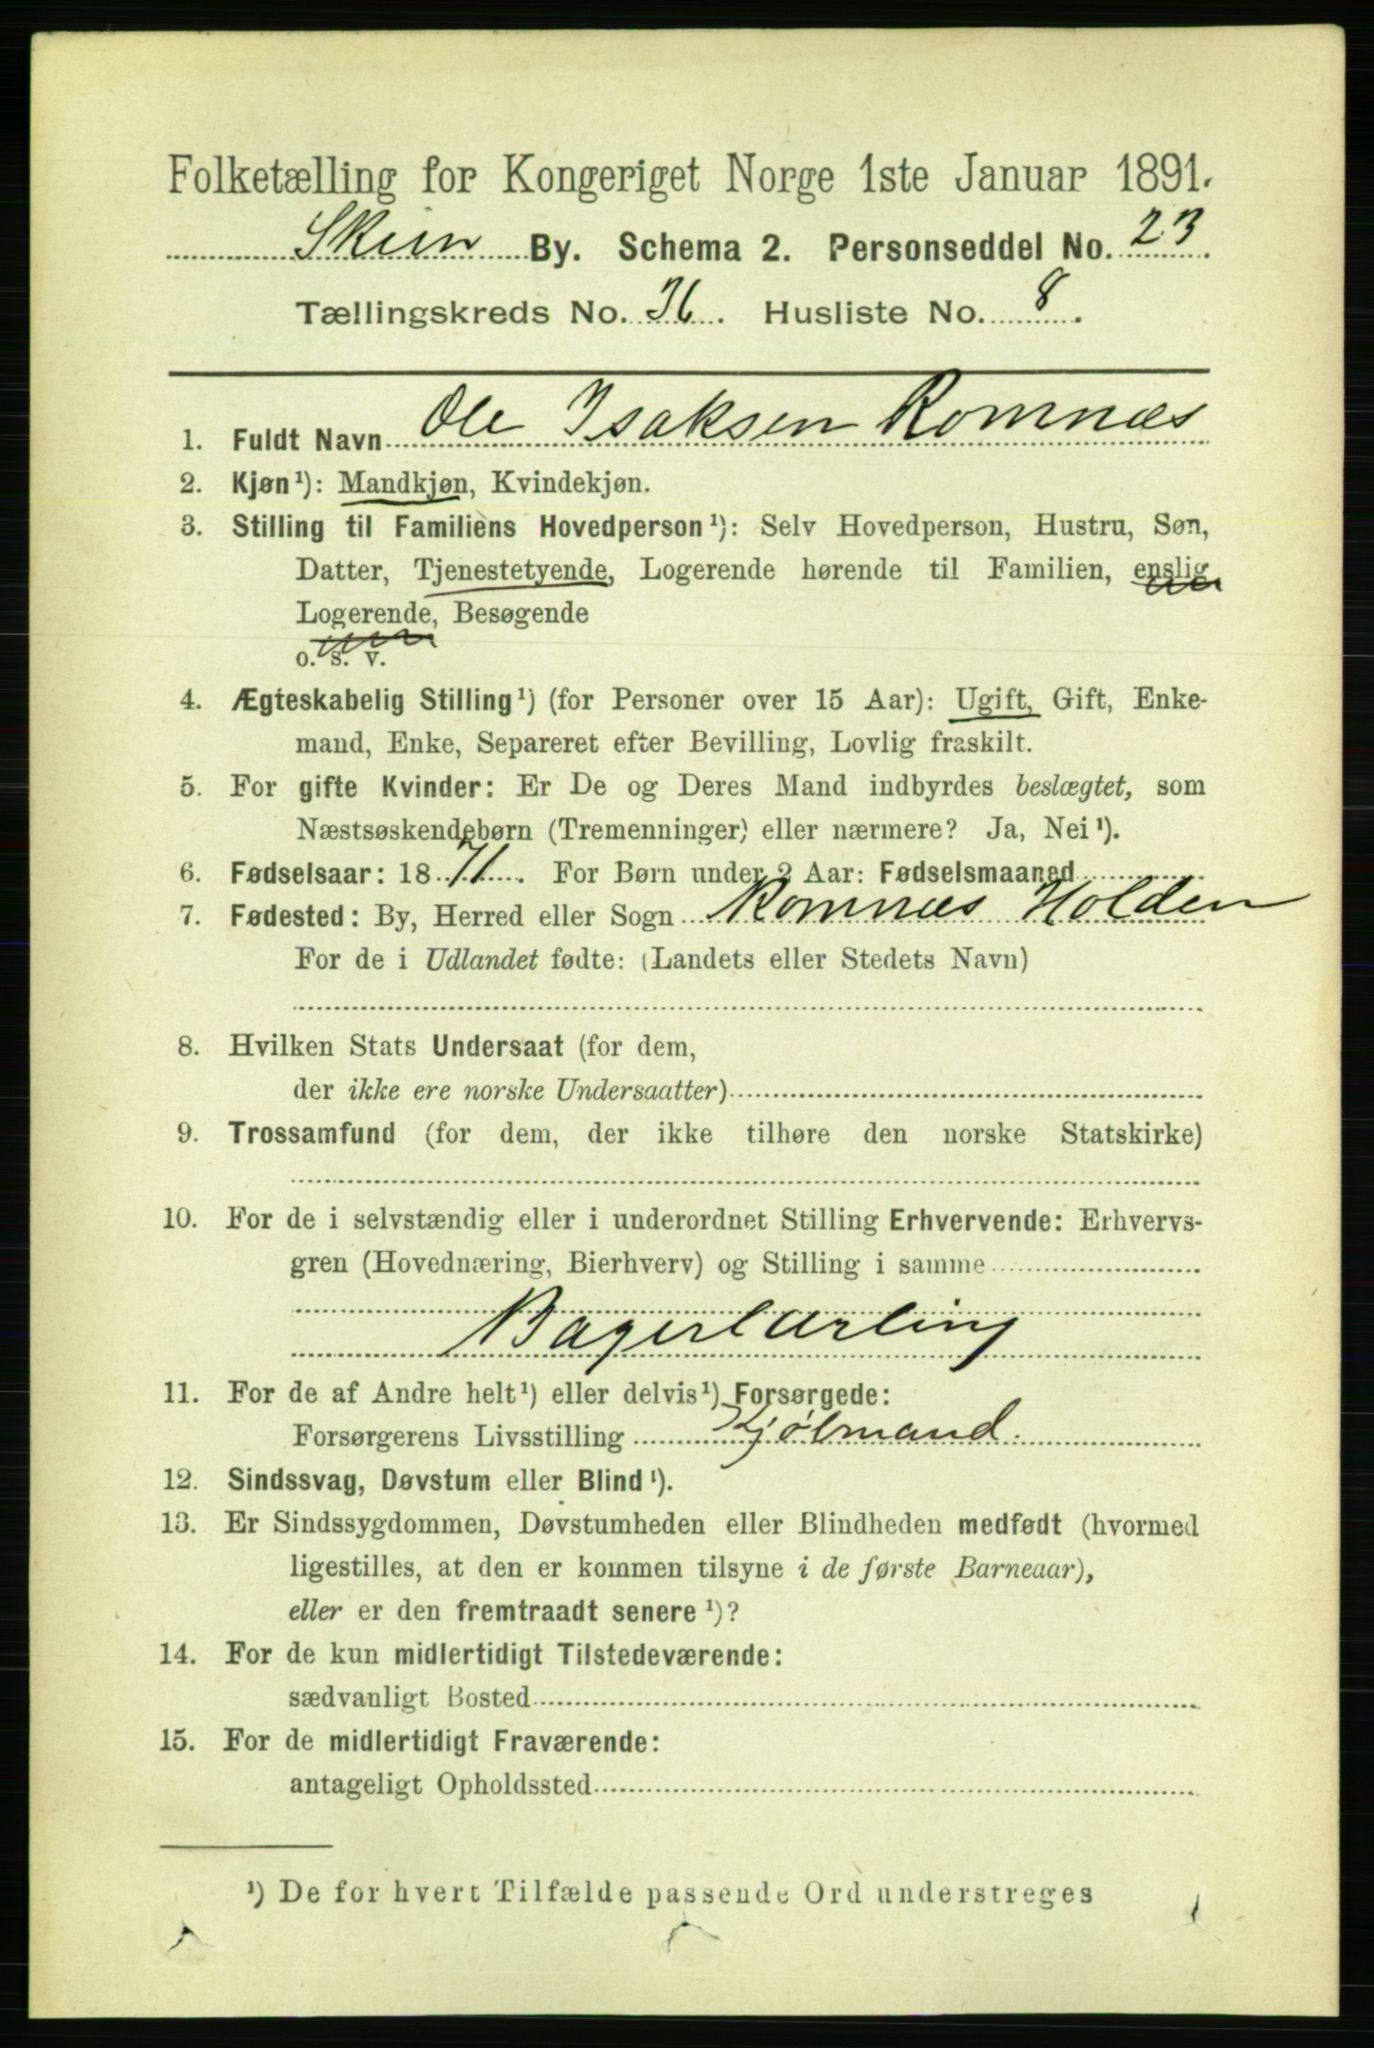 Folketælling for Kongeriget Norge 1ste Januar 1891.
Skien By. Schema 2. Personseddel No. 23
Tællingskreds No. 36. Husliste No. 8.
1. Fuldt Navn Ole Isaksen Romnæs
2. Kjøn¹): Mandkjøn, Kvindekjøn.
3. Stilling til Familiens Hovedperson¹): Selv Hovedperson, Hustru, Søn,
Datter, Tjenestetyende, Logerende hørende til Familien, enslig
Logerende, Besøgende
o. s. v.
4. Ægteskabelig Stilling¹) (for Personer over 15 Aar): Ugift, Gift, Enke-
mand, Enke, Separeret efter Bevilling, Lovlig fraskilt.
5. For gifte Kvinder: Er De og Deres Mand indbyrdes beslægtet, som
Næstsøskendebørn (Tremenninger) eller nærmere? Ja, Nei¹).
6. Fødselsaar: 1871. For Børn under 2 Aar: Fødselsmaaned
7. Fødested: By, Herred eller Sogn Romnæs Holden
For de i Udlandet fødte: (Landets eller Stedets Navn)
8. Hvilken Stats Undersaat (for dem,
der ikke ere norske Undersaatter)
9. Trossamfund (for dem, der ikke tilhøre den norske Statskirke)
10. For de i selvstændig eller i underordnet Stilling Erhvervende: Erhvervs-
gren (Hovednæring, Bierhverv) og Stilling i samme
Bagerlærling
11. For de af Andre helt¹) eller delvis¹) Forsørgede:
Forsørgerens Livsstilling Kjølmand.
12. Sindssvag, Døvstum eller Blind¹).
13. Er Sindssygdommen, Døvstumheden eller Blindheden medfødt (hvormed
ligestilles, at den er kommen tilsyne i de første Barneaar),
eller er den fremtraadt senere¹)?
14. For de kun midlertidigt Tilstedeværende:
sædvanligt Bosted
15. For de midlertidigt Fraværende:
antageligt Opholdssted
¹) De for hvert Tilfælde passende Ord understreges